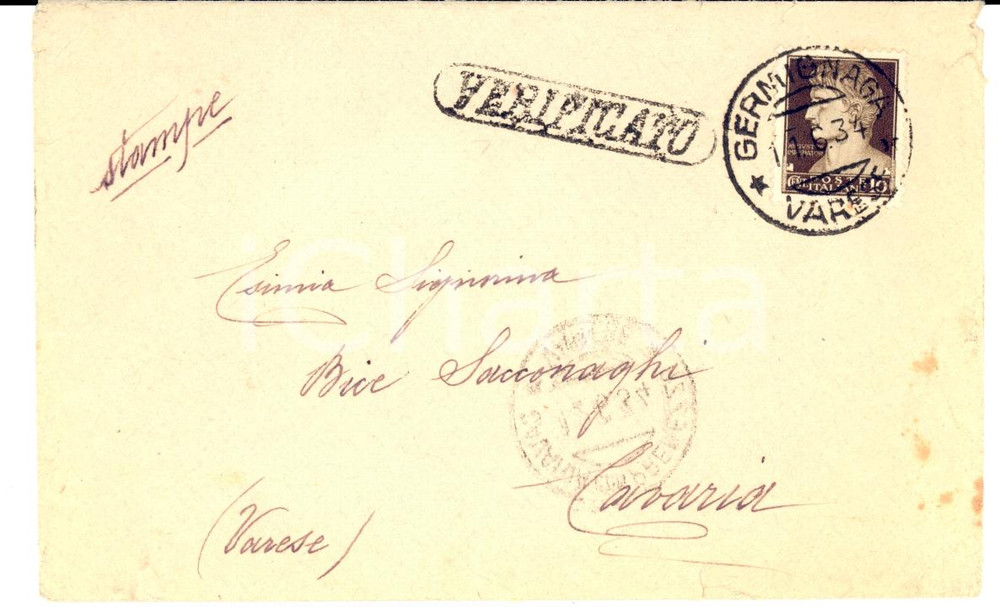 stampe
VERIFICATO
GERMIGNAGA
6.34
VARESE
POSTE
ITALIANE
10
Esimia Signorina
Bice Sacconaghi
Cavaria
(Varese)
iCharta